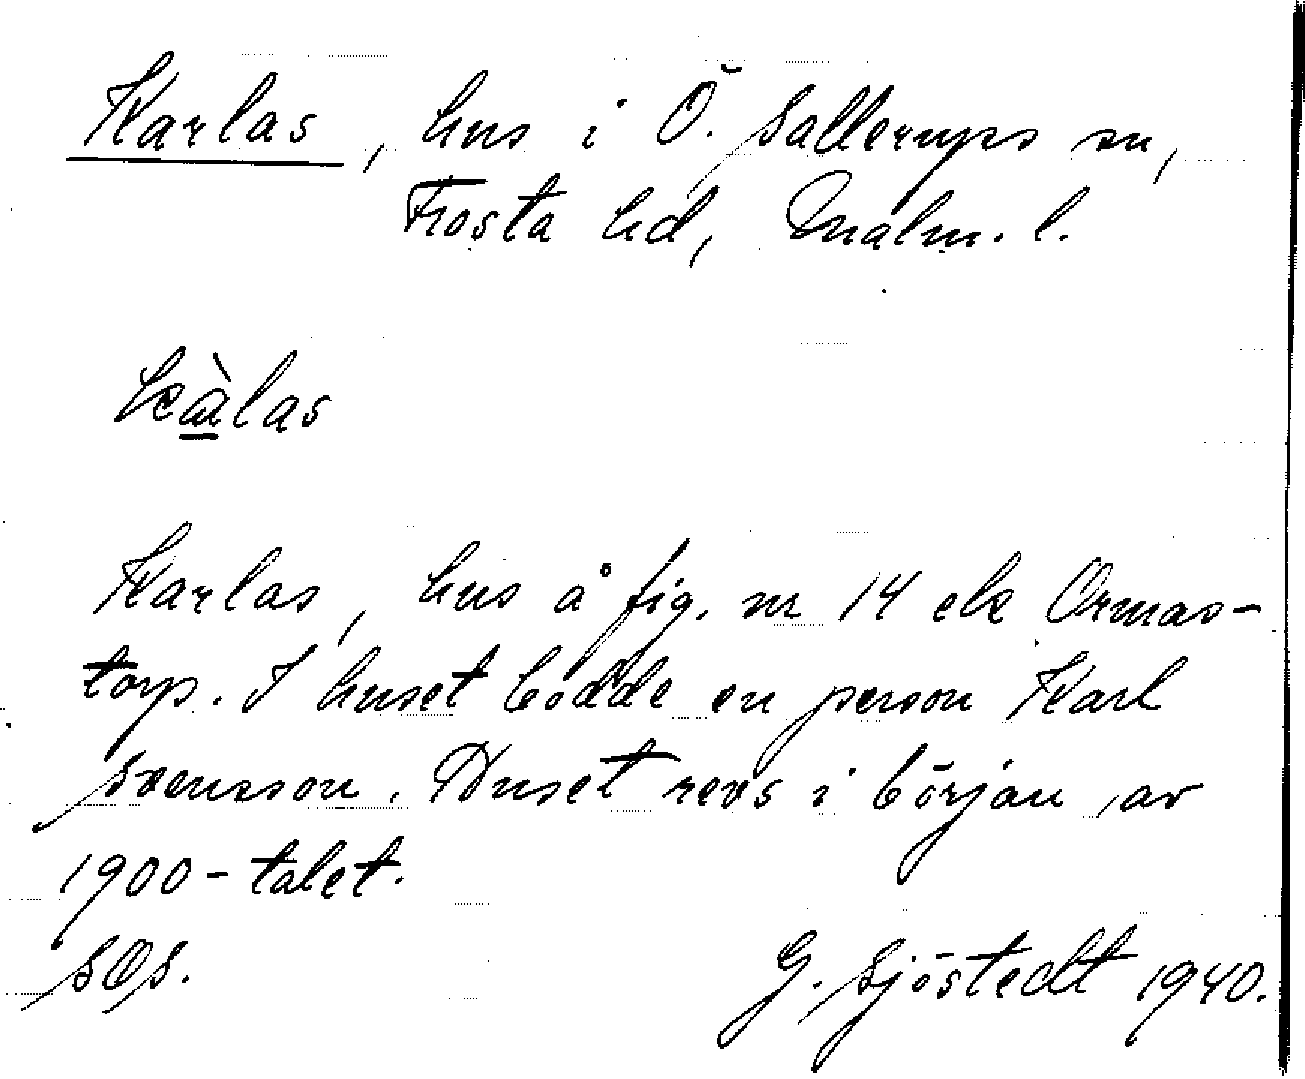 Karlas, hus i Ö. Sallerups sn,
Frosta hd, Malm. l.
kàlas
Karlas, hus å fig. nr 14 ek Ormas-
torp. I huset bodde en person Karl
Svensson. Huset revs i början av
1900-talet.
SOS.
G. Sjöstedt 1940.